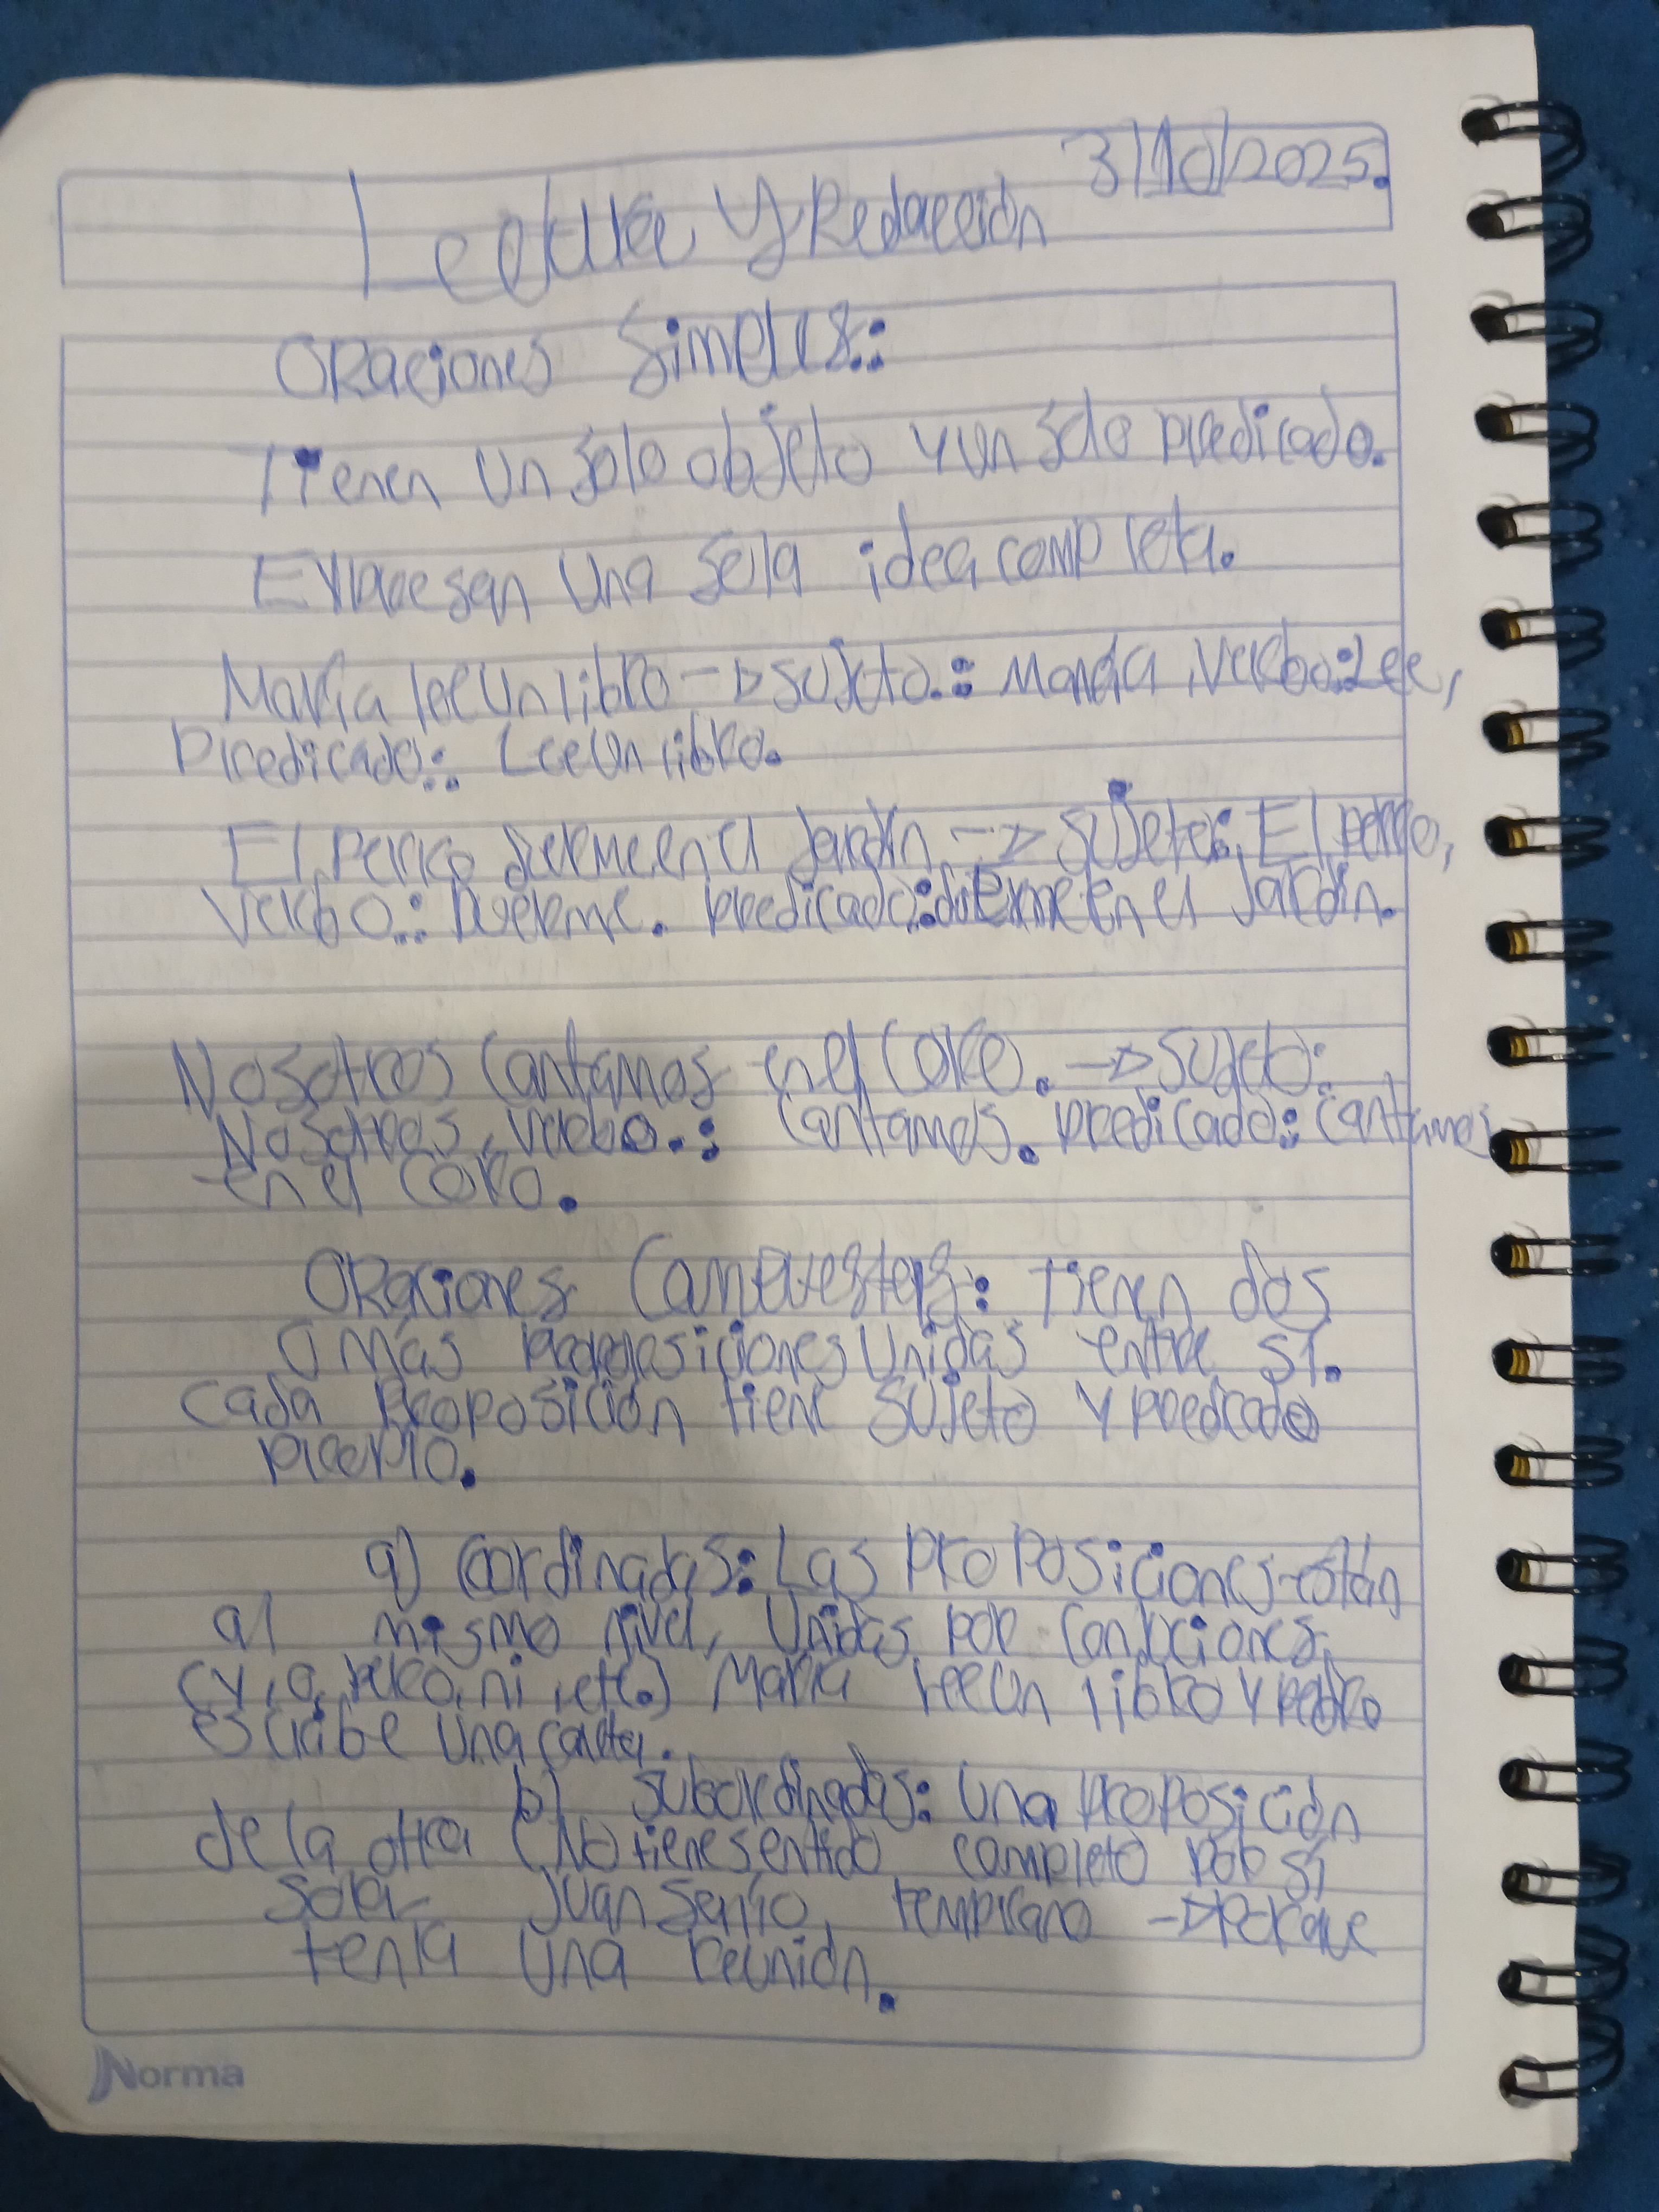 3/10/2025.
Lectura y Redacción
Oraciones Simples.:
Tienen un solo objeto y un solo predicado.
Expresan una sola idea completa.
María lee un libro -> sujeto.: María, Verbo: Lee,
Predicado.: Lee un libro.
El perro duerme en el Jardín. -> Sujeto: El perro,
Verbo.: Duerme. predicado: duerme en el Jardín.
Nosotros Cantamos en el Coro. -> Sujeto:
Nosotros, verbo.: Cantamos. predicado: Cantamos
en el Coro.
Oraciones Compuestas: tienen dos
o más proposiciones unidas entre sí.
cada proposición tiene sujeto y predicado
a) Coordinadas: Las proposiciones están
al mismo nivel, Unidas por
(y, o, pero, ni, etc.) María lee un libro y Pedro
escribe una carta.
b) Subordinadas: Una proposición
de la otra (No tiene sentido completo por sí
sola Juan temprano -> Porque
tenía una reunión.
Norma